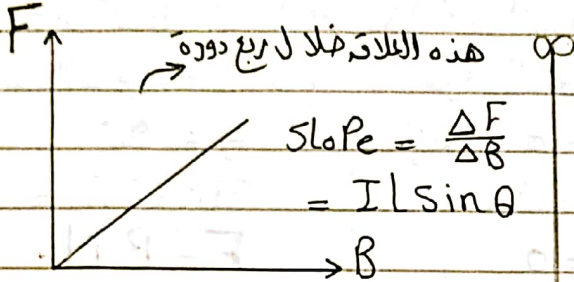 F
هذه العلاقه خلال ربع دورة
∞
Slope = ΔF/ΔB
= I L Sin θ
B